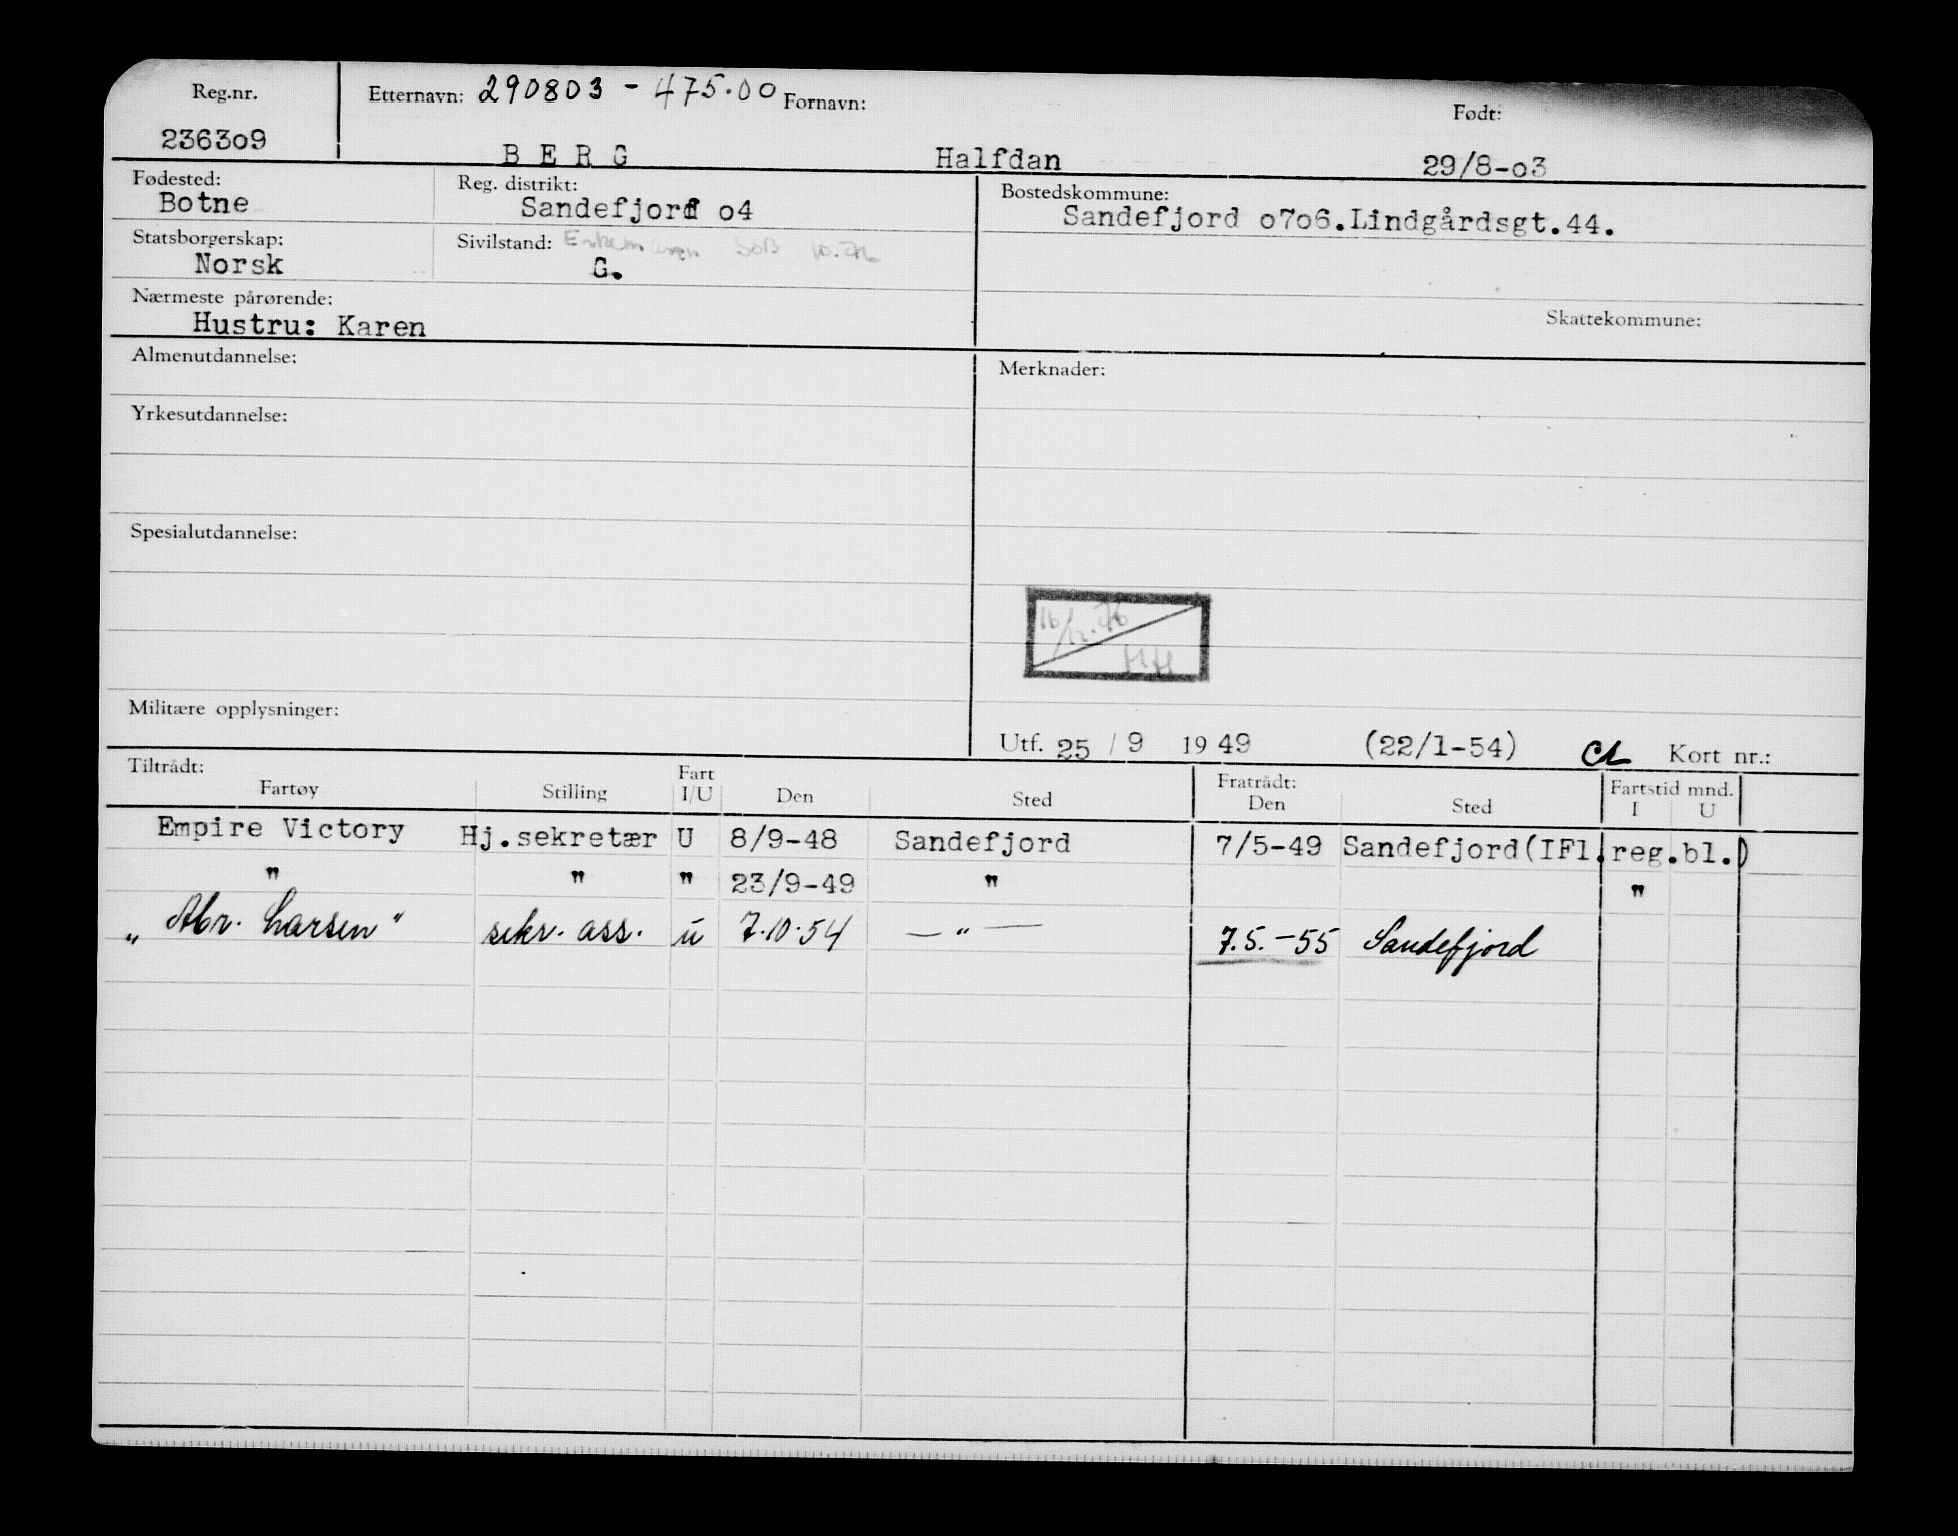 Reg.nr. Etternavn: 290803 - 475.00 Fornavn: Født:
2363o9 BERG Halfdan 29/8-o3
Fødested: Reg. distrikt: Bostedskommune:
Botne Sandefjord o4 Sandefjord o7o6.Lindgårdsgt.44.
Statsborgerskap: Sivilstand:
Norsk G.
Nærmeste pårørende: Skattekommune:
Hustru: Karen
Almenutdannelse: Merknader:
Yrkesutdannelse:
Spesialutdannelse:
16/12.76
HH
Militære opplysninger:
Utf. 25 / 9 19 49 (22/1-54) CL Kort nr.:
Tiltrådt: Fart Fratrådt: Fartstid mnd.
Fartøy Stilling I/U Den Sted Den Sted I U
Empire Victory Hj.sekretær U 8/9-48 Sandefjord 7/5-49 Sandefjord(IFl.reg.bl.)
" " " 23/9-49 " "
„ Abr. Larsen " sekr. ass. u 7.10.54 — " — 7.5.-55 Sandefjord